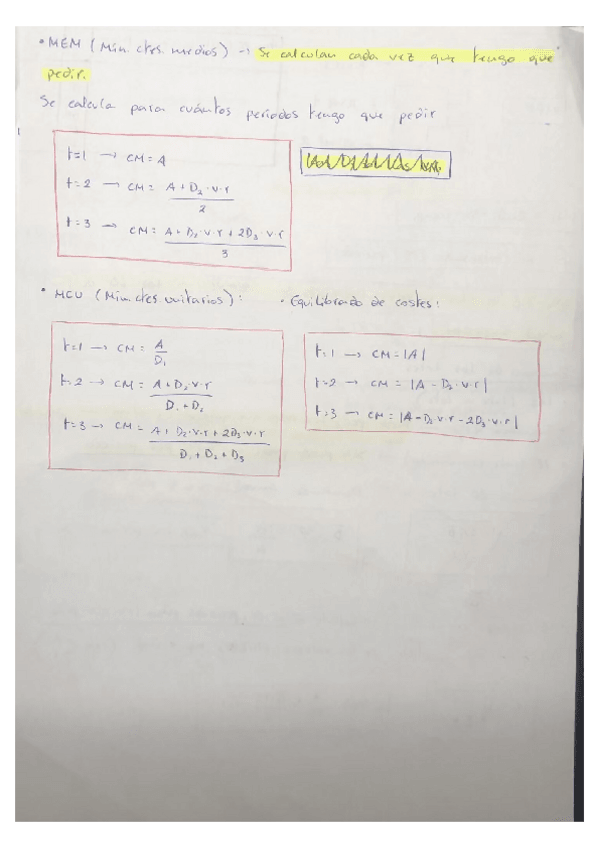 • MEM (Min. ctes. medios) → Se calculan cada vez que tengo que
pedir.
Se calcula para cuántos períodos tengo que pedir
t=1 → CM = A
t=2 → CM = A + D₂·v·r / 2
t=3 → CM = A + D₂·v·r + 2D₃·v·r / 3
• MCU (Min ctes unitarios):
t=1 → CM = A / D₁
t=2 → CM = A + D₂·v·r / D₁ + D₂
t=3 → CM = A + D₂·v·r + 2D₃·v·r / D₁ + D₂ + D₃
• Equilibrado de costes:
t=1 → CM = |A|
t=2 → CM = |A - D₂·v·r|
t=3 → CM = |A - D₂·v·r - 2D₃·v·r|